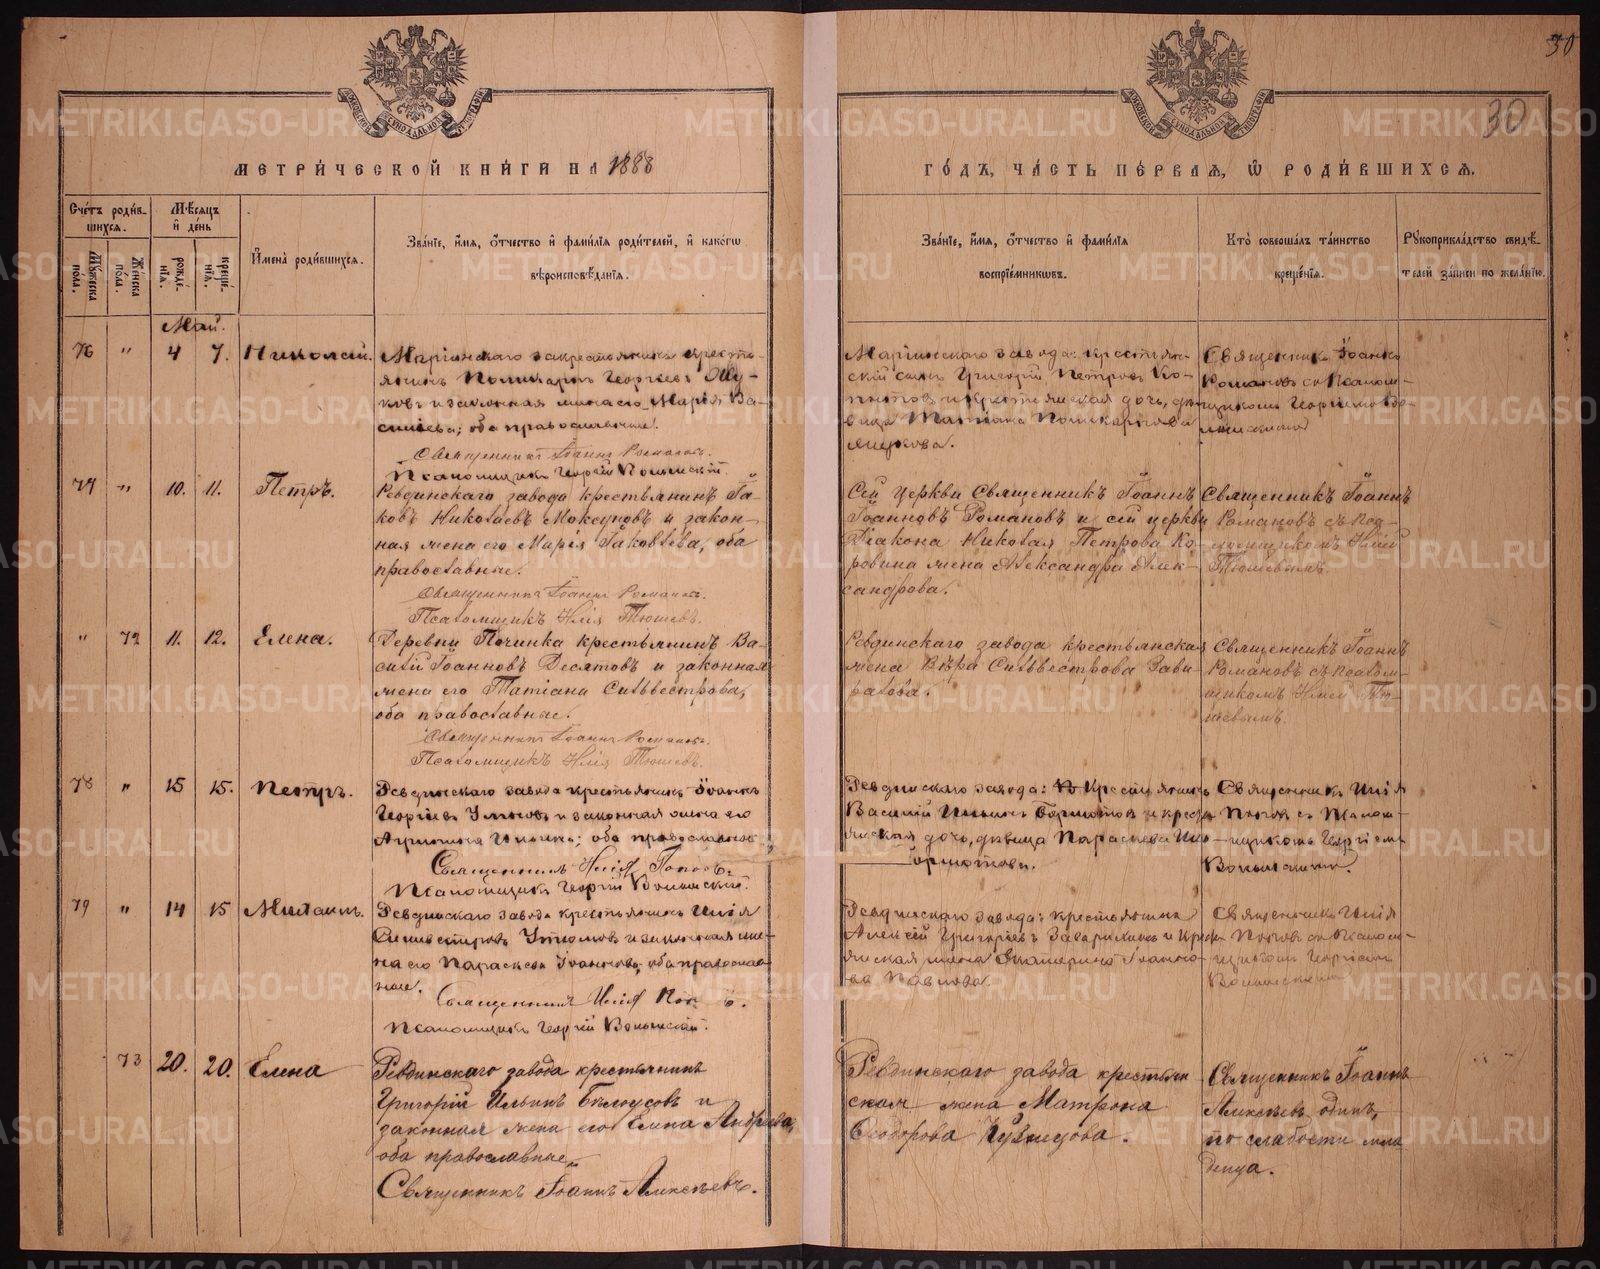 30
30
МЕТРИЧЕСКОЙ КНИГИ НА 1888
ГОДЪ, ЧАСТЬ ПЕРВАЯ, Ѡ РОДИВШИХСЯ.
Счетъ родив-
шихся.
Мꙋжеска пола.
Женска пола.
Мѣсяцъ и день
рожде-
нія.
креще-
нія.
Имена родившихся.
Званіе, имя, отчество и фамилія родителей, и какогѡ
вѣроисповѣданія.
Званіе, имя, отчество и фамилія
воспріемникѡвъ.
Кто совершалъ таинство
крещенія.
Рꙋкоприкладство свидѣ-
телей записи по желанію.
Май.
76 " 4 7. Николай.
Маріинскаго крестья-
нинъ Поликарпъ Георгіевъ
и законная жена его Марія Ва-
сильева; оба православные.
Священникъ Іоаннъ Романовъ.
Псаломщикъ Георгій
Маріинскаго завода: крестьян-
скій сынъ Григорій Петровъ Ко-
пытовъ и крестьянская дочь, дѣ-
вица Татіана Поликарпова
Священникъ Іоаннъ
Романовъ съ Псалом-
щикомъ Георгіемъ
77 " 10. 11. Петръ.
Ревдинскаго завода крестьянинъ Іа-
ковъ Николаевъ Моксуновъ и закон-
ная жена его Марія Іаковлева, оба
православные.
Священникъ Іоаннъ Романовъ.
Псаломщикъ Илія Тюшевъ.
Сей церкви Священникъ Іоаннъ
Іоанновъ Романовъ и сей церкви
Діакона Николая Петрова Ко-
ровина жена Александра Алек-
сандрова.
Священникъ Іоаннъ
Романовъ съ Пса-
ломщикомъ Иліей
Тюшевымъ.
" 72 11. 12. Елена.
Деревни Починка крестьянинъ Ва-
силій Іоанновъ Десятовъ и законная
жена его Татіана Сильвестрова,
оба православные.
Священникъ Іоаннъ Романовъ.
Псаломщикъ Илія Тюшевъ.
Ревдинскаго завода крестьянская
жена Вѣра Сильвестрова
Священникъ Іоаннъ
Романовъ съ Псалом-
щикомъ Иліей Тю-
шевымъ.
78 " 15 15. Петръ.
Ревдинскаго завода крестьянинъ Іоаннъ
Георгіевъ и законная жена его
оба православные
Священникъ Илія Поповъ.
Псаломщикъ Георгій
Ревдинскаго завода: крестьянинъ
Василій Ильинъ и крестья-
нская дочь, дѣвица Параскева
Священникъ Илія
Поповъ съ Псалом-
щикомъ Георгіемъ
79 " 14 15 Михаилъ.
Ревдинскаго завода крестьянинъ Илія
Сильвестровъ и законная же-
на его Параскева Іоаннова, оба православ-
ные.
Священникъ Илія Поповъ.
Псаломщикъ Георгій
Ревдинскаго завода: крестьянинъ
Алексѣй Григорьевъ и крестья-
нская жена Екатерина Іоанно-
ва
Священникъ Илія
Поповъ съ Псалом-
щикомъ Георгіемъ
73 20. 20. Елена
Ревдинскаго завода крестьянинъ
Григорій Ильинъ Бѣлоусовъ и
законная жена его Елена Андреева,
оба православные.
Священникъ Іоаннъ Алексѣевъ.
Ревдинскаго завода крестьян
ская жена Матрона
Ѳеодорова
Священникъ Іоаннъ
Алексѣевъ одинъ,
по слабости мла
денца.
METRIKI.GASO-URAL.RU